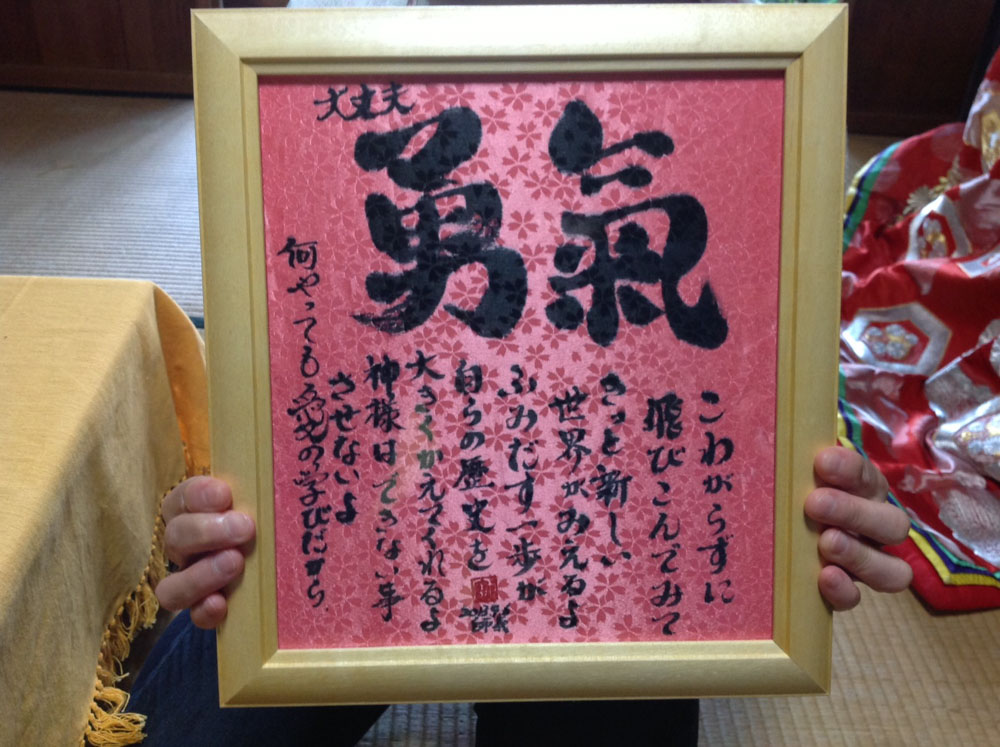 勇氣
こわがらずに
飛びこんでみて
きっと新しい
世界がみえるよ
ふみだす一歩が
自らの歴史を
大きくかえてくれるよ
神様はできない事
させないよ
何やっても愛の学びだから
大丈夫